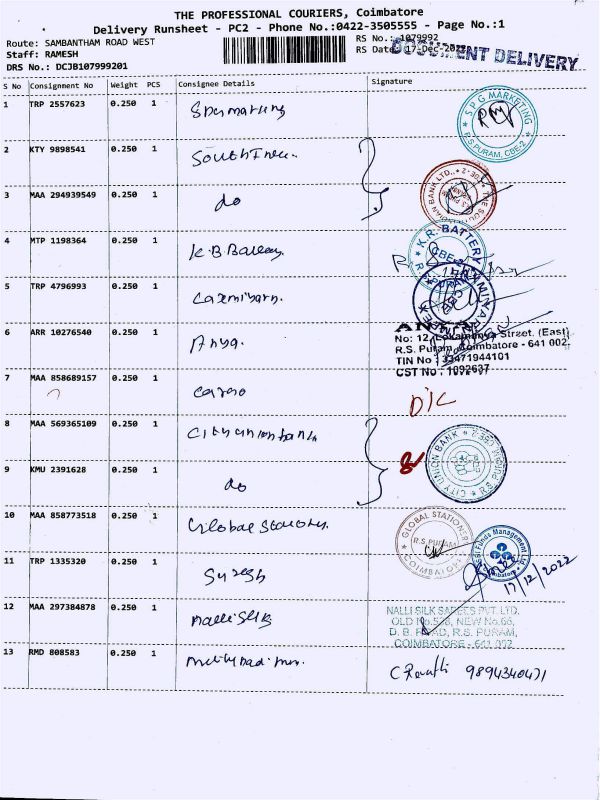 THE PROFESSIONAL COURIERS, Coimbatore
Delivery Runsheet - PC2 - Phone No.:0422-3505555 - Page No.:1
Route: SAMBANTHAM ROAD WEST
RS No.: 1079992
Staff: RAMESH
RS Date: 17-Dec-2022
DOCUMENT DELIVERY
DRS No.: DCJB107999201
S No Consignment No Weight PCS Consignee Details Signature
1 TRP 2557623 0.250 1 Spgmarketing
S P G MARKETING
R.S.PURAM, CBE-2
2 KTY 9898541 0.250 1 South Indian
3 MAA 294939549 0.250 1 do
4 MTP 1198364 0.250 1 K.B.Battery
K.R. BATTERY
CBE-2
5 TRP 4796993 0.250 1
6 ARR 10276540 0.250 1 Anya.
No: 12, Lokamanya Street, (East)
R.S. Puram, Coimbatore - 641 002
TIN No : 33471944101
CST No : 1092637
7 MAA 858689157 0.250 1 cargo D/C
8 MAA 569365109 0.250 1 Cityunionbank
CITY UNION BANK
R.S. PURAM
9 KMU 2391628 0.250 1 do
10 MAA 858773518 0.250 1 Global Stationery.
GLOBAL STATIONERY
R.S. PURAM
COIMBATORE
11 TRP 1335320 0.250 1 Suresh
SBI Funds Management Ltd
Coimbatore
17/12/2022
12 MAA 297384878 0.250 1 nallisilks
NALLI SILK SAREES PVT. LTD.
OLD No.536, NEW No.66,
D. B. ROAD, R.S. PURAM,
COIMBATORE - 641 002
13 RMD 808583 0.250 1
C Revathi 9894340471